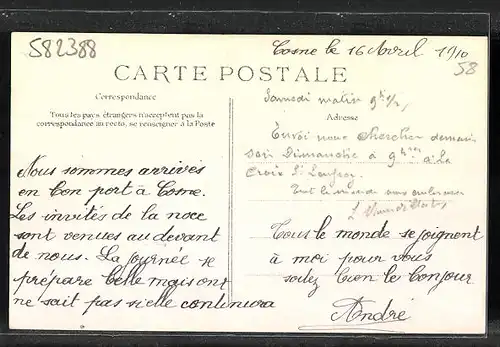 582388
Cosne le 16 Avril 1910
58
CARTE POSTALE
Correspondance
Tous les pays étrangers n'acceptent pas la
correspondance au recto, se renseigner à la Poste
Samedi matin 9h 1/2,
Adresse
Envoi nous chercher demain
soir Dimanche à 9 heures à la
Croix St
Tout le monde vous embrasse
Nous sommes arrivés
en bon port à Cosne.
Les invités de la noce
sont venues au devant
de nous. La journée se
prépare belle mais ont
ne sait pas si elle continura
Tous le monde se joignent
à moi pour vous
soitez bien le bonjour
André